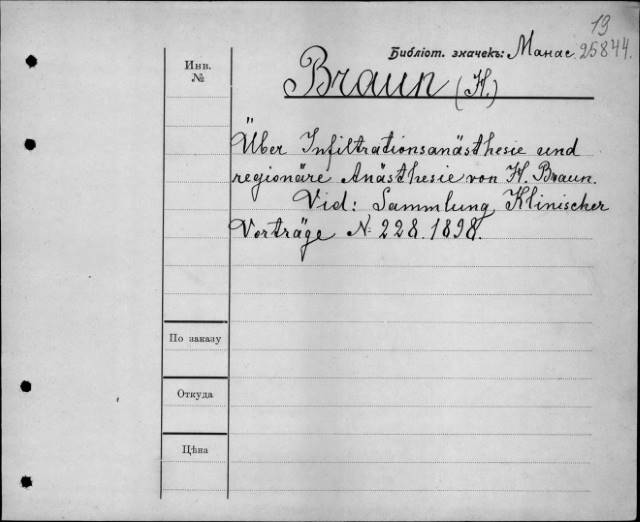 13
Библіот. значекъ: Манас. 25844.
Инв.
№
Braun (H.)
Über Infiltrationsanästhesie und
regionäre Anästhesie von H. Braun.
Vid: Sammlung Klinischer
Vorträge N: 228. 1898.
По заказу
Откуда
Цѣна